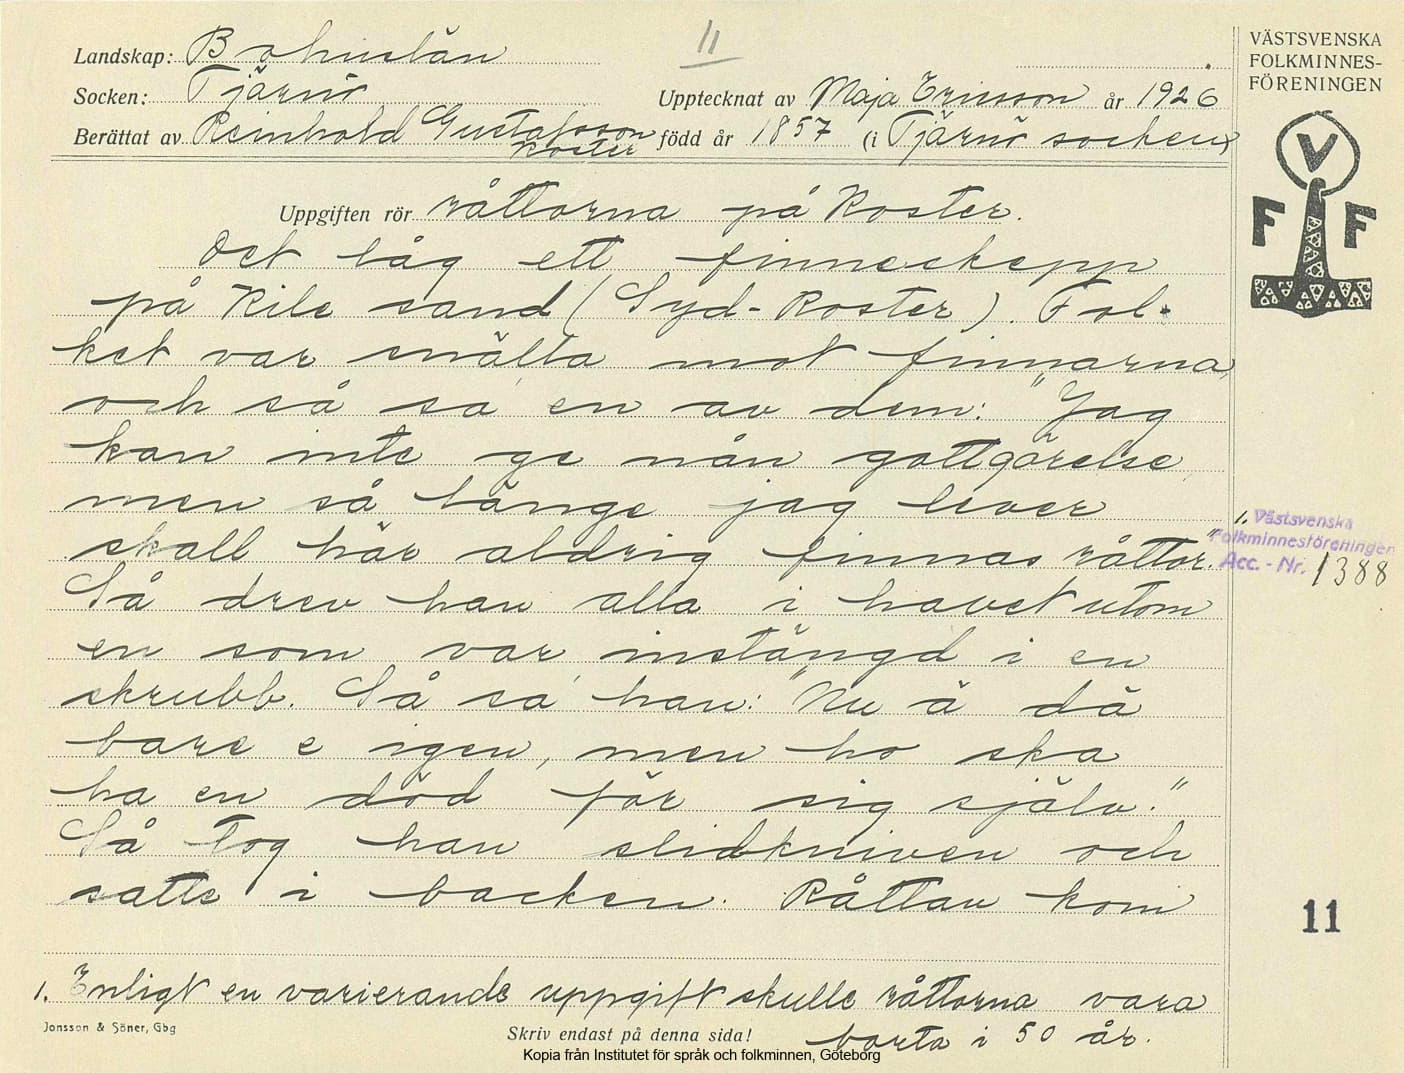 11
Landskap: Bohuslän
Socken: Tjärnö
Upptecknat av Maja Ericsson år 1926
Berättat av Reinhold Gustafsson född år 1857 (i Tjärnö socken)
Koster
VÄSTSVENSKA
FOLKMINNES-
FÖRENINGEN
V
F F
Uppgiften rör råttorna på Koster.
Det låg ett finneskepp
på Kile sand (Syd-Koster). Fol-
ket var snälla mot finnarna,
och så sa' en av dem: "Jag
kan inte ge nån gottgörelse,
men så länge jag lever
skall här aldrig finnas råttor."
1. Västsvenska
Folkminnesföreningen
Acc. - Nr. 1388
Så drev han alla i havet utom
en som var instängd i en
skrubb. Så sa' han: "Nu ä dä
bare e igen, men ho ska
ha en död för sig själv."
Så tog han slidkniven och
satte i backen. Råttan kom
11
1. Enligt en varierande uppgift skulle råttorna vara
borta i 50 år.
Jonsson & Söner, Gbg
Skriv endast på denna sida!
Kopia från Institutet för språk och folkminnen, Göteborg